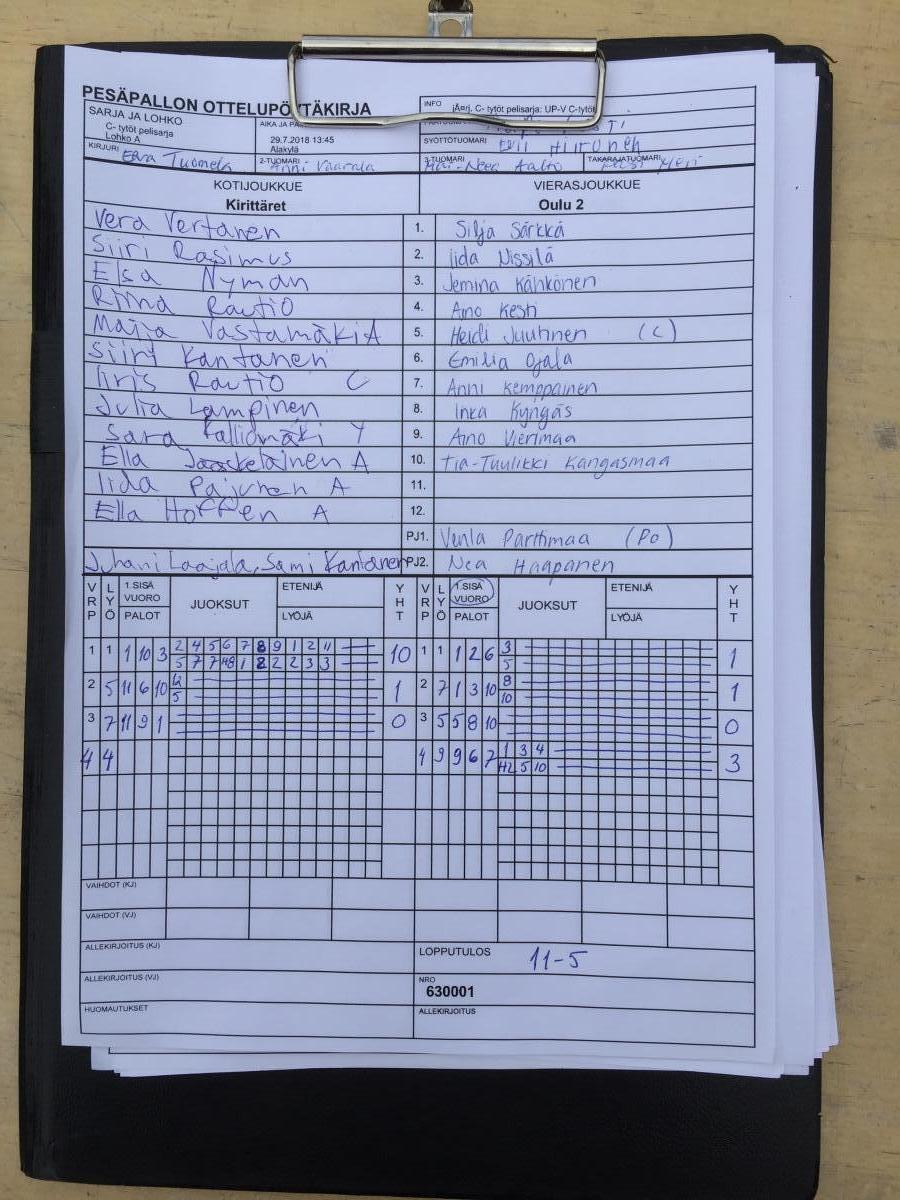 PESÄPALLON OTTELUPÖYTÄKIRJA
SARJA JA LOHKO
C- tytöt pelisarja
Lohko A
AIKA JA
29.7.2018 13:45
Alakylä
INFO jÄerj. C- tytöt pelisarja: UP-V C-tytöt
SYÖTTÖTUOMARI
KIRJURI Elsa Tuomela
2-TUOMARI Anni Vaarala
3-TUOMARI Mai-Neea Aalto
TAKARAJATUOMARI Meri
KOTIJOUKKUE VIERASJOUKKUE
Kirittäret Oulu 2
Vera Vertanen 1. Silja Särkkä
Siiri Rasimus 2. Iida Nissilä
Elsa Nyman 3. Jemina Kähkönen
Rinna Rautio 4. Aino Kesti
Maija Vastamäki A 5. Heidi Juutinen (C)
Siiri Kantanen 6. Emilia Ojala
Iiris Rautio C 7. Anni Kemppainen
Julia Lampinen 8. Inka Kyngäs
Sara Kalliomäki Y 9. Aino Vierimaa
Ella Jääskeläinen A 10. Tia-Tuulikki Kangasmaa
Iida Pajunen A 11.
Ella Hoffen A 12.
PJ1. Venla Parttimaa (Po)
Juhani Laajala, Sami Kantanen PJ2. Nea Haapanen
VRP LYÖ 1.SISÄ VUORO PALOT JUOKSUT ETENIJÄ LYÖJÄ YHT VRP LYÖ 1.SISÄ VUORO PALOT JUOKSUT ETENIJÄ LYÖJÄ YHT
1 1 1 10 3 2 4 5 6 7 8 9 1 2 11 10 1 1 1 2 6 3 1
5 7 7 H8 1 2 2 2 3 3 5
2 5 11 6 10 12 1 2 7 1 3 10 8 1
5 10
3 7 11 9 1 0 3 5 5 8 10 0
4 4 4 9 9 6 7 1 3 4 3
H2 5 10
VAIHDOT (KJ)
VAIHDOT (VJ)
ALLEKIRJOITUS (KJ) LOPPUTULOS 11-5
ALLEKIRJOITUS (VJ) NRO
630001
HUOMAUTUKSET ALLEKIRJOITUS